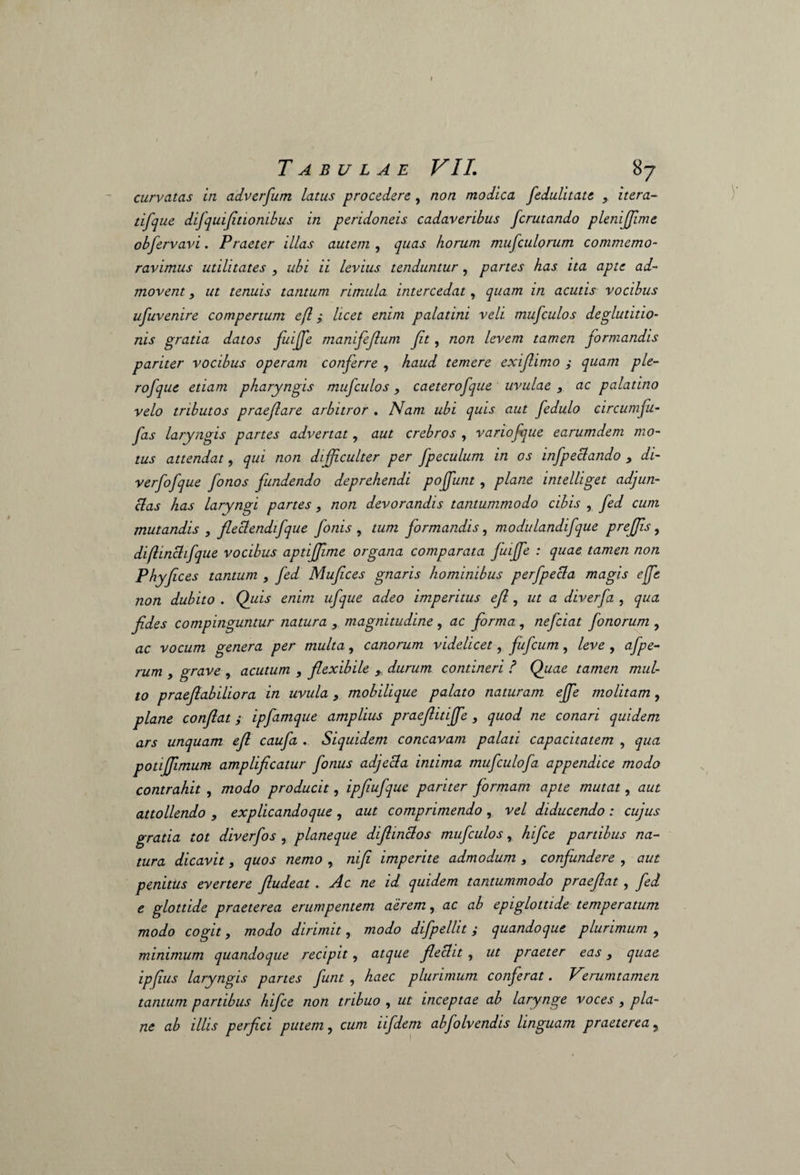 TABULAE VII. 87
curvatas in adverſum latus procedere , non modica ſedulitate , itera-
tiſque diſquiſitionibus in peridoneis cadaveribus ſcrutando pleniſſime
obſervavi . Praeter illas autem , quas horum muſculorum commemo-
ravimus utilitates , ubi ii levius tenduntur , partes has ita apte ad-
movent , ut tenuis tantum rimula intercedat , quam in acutis vocibus
uſuvenire compertum eſt ; licet enim palatini veli muſculos deglutitio-
nis gratia datos fuiſſe manifeſtum ſit , non levem tamen formandis
pariter vocibus operam conferre , haud temere exiſtimo ; quam ple-
roſque etiam pharyngis muſculos , caeteroſque uvulae , ac palatino
velo tributos praeſtare arbitror . Nam ubi quis aut ſedulo circumfu-
ſas laryngis partes advertat , aut crebros , varioſque earumdem mo-
tus attendat , qui non difficulter per ſpeculum in os inſpectando , di-
verſoſque ſonos fundendo deprehendi poſſunt , plane intelliget adjun-
ctas has laryngi partes , non devorandis tantummodo cibis , ſed cum
mutandis , flectendiſque ſonis , tum formandis , modulandiſque preſſis ,
diſtinctiſque vocibus aptiſſime organa comparata fuiſſe : quae tamen non
Phyſices tantum , ſed Muſices gnaris hominibus perſpecta magis eſſe
non dubito . Quis enim uſque adeo imperitus eſt , ut a diverſa , qua
fides compinguntur natura , magnitudine , ac forma , neſciat ſonorum ,
ac vocum genera per multa , canorum videlicet , fuſcum , leve , aſpe-
rum , grave , acutum , flexibile , durum contineri ? Quae tamen mul-
to praeſtabiliora in uvula , mobilique palato naturam eſſe molitam ,
plane conſtat ; ipſamque amplius praeſtitiſſe , quod ne conari quidem
ars unquam eſt cauſa . Siquidem concavam palati capacitatem , qua
potiſſimum amplificatur ſonus adjecta intima muſculoſa appendice modo
contrahit , modo producit , ipſiuſque pariter formam apte mutat , aut
attollendo , explicandoque , aut comprimendo , vel diducendo : cujus
gratia tot diverſos , planeque diſtinctos muſculos , hiſce partibus na-
tura dicavit , quos nemo , niſi imperite admodum , confundere , aut
penitus evertere ſtudeat . Ac ne id quidem tantummodo praeſtat , ſed
e glottide praeterea erumpentem aërem , ac ab epiglottide temperatum
modo cogit , modo dirimit , modo diſpellit ; quandoque plurimum ,
minimum quandoque recipit , atque flectit , ut praeter eas , quae
ipſius laryngis partes ſunt , haec plurimum conferat . Verumtamen
tantum partibus hiſce non tribuo , ut inceptae ab larynge voces , pla-
ne ab illis perfici putem , cum iiſdem abſolvendis linguam praeterea ,